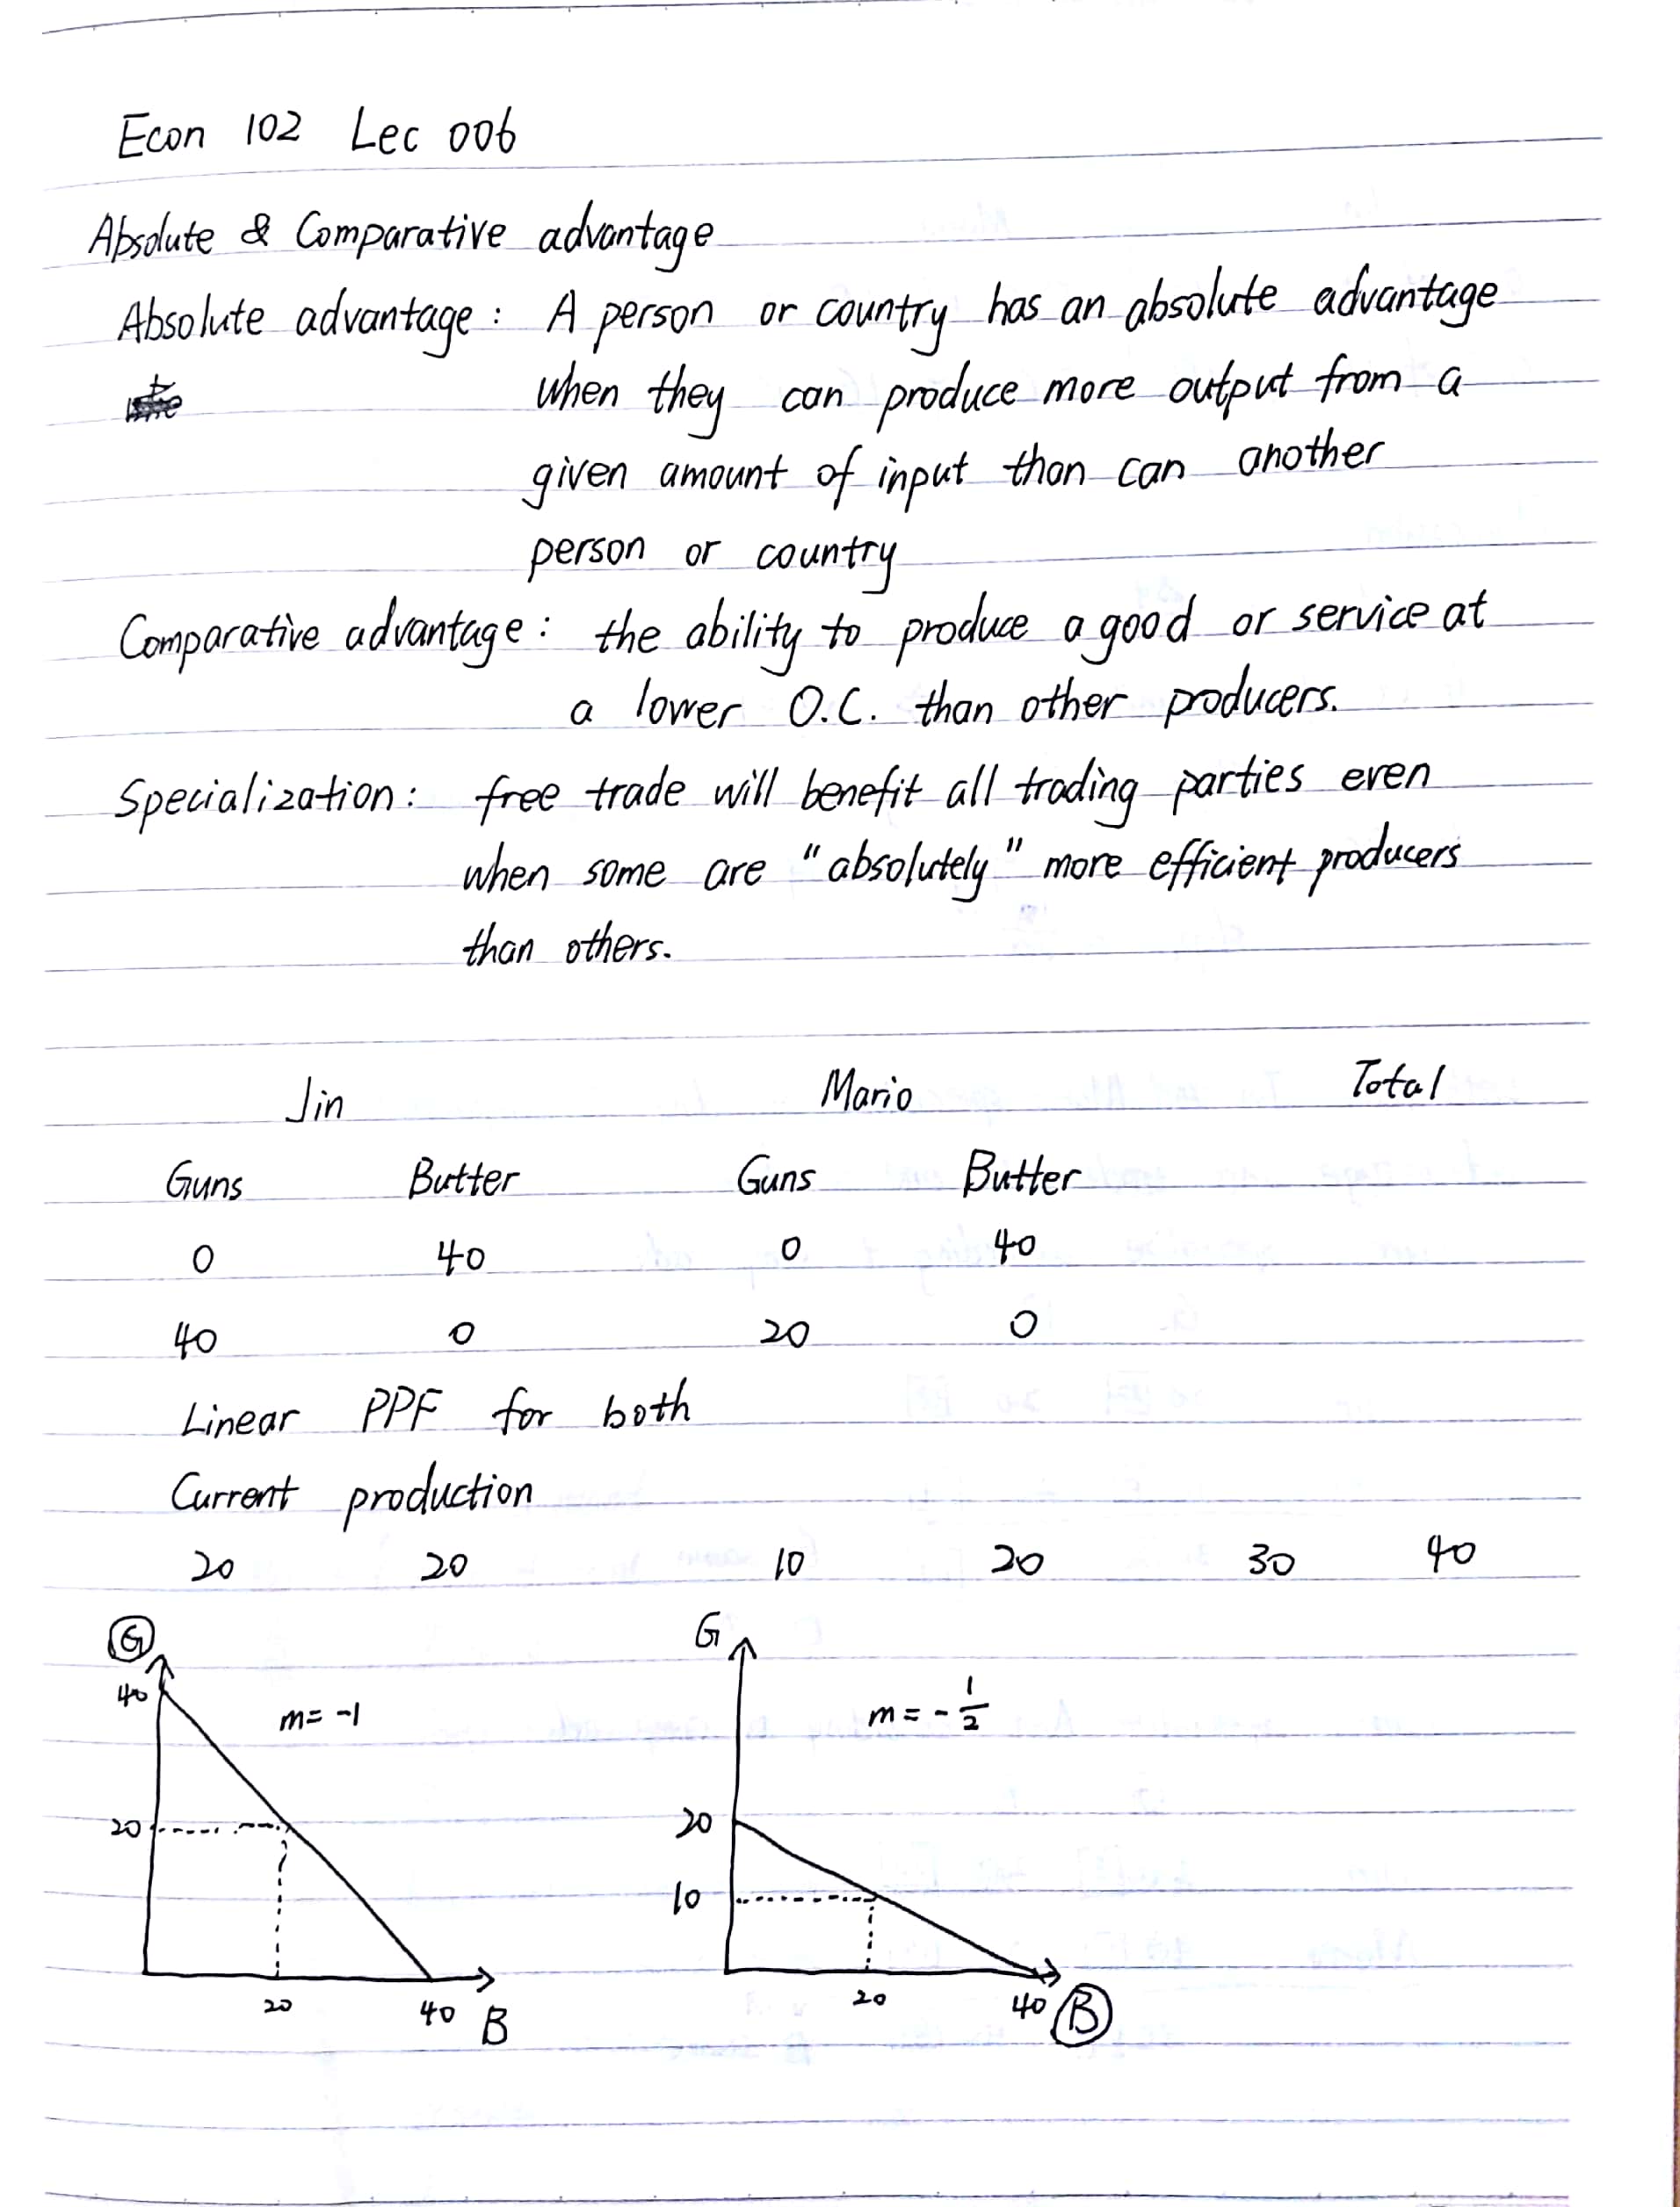 Econ 102 Lec 006
Absolute & Comparative advantage
Absolute advantage : A person or country has an absolute advantage
when they can produce more output from a
given amount of input than can another
person or country
Comparative advantage : the ability to produce a good or service at
a lower O.C. than other producers.
Specialization : free trade will benefit all trading parties even
when some are "absolutely" more efficient producers
than others.
Jin Mario Total
Guns Butter Guns Butter
0 40 0 40
40 0 20 0
Linear PPF for both
Current production
20 20 10 20 30 40
G G
40 m = -1 m = - 1/2
20 20
10
20 40 B 20 40 B